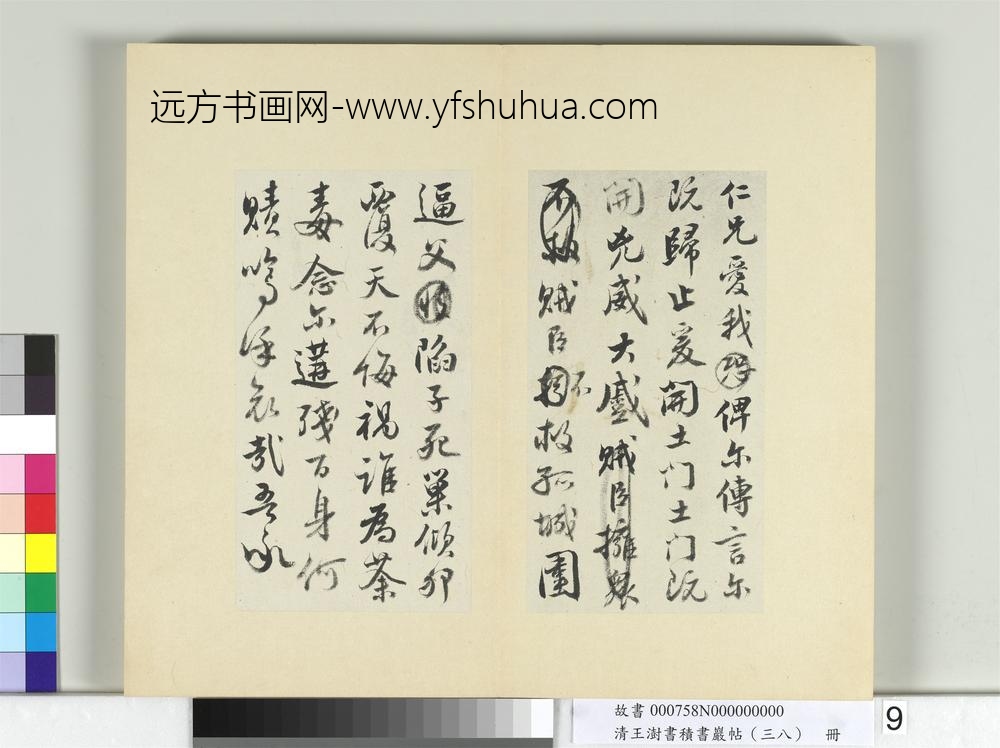 远方书画网-www.yfshuhua.com
仁兄愛我俾尓傳言尓
既歸止爰開土門土門既
開兇威大蹙賊臣擁衆
不救賊臣不救孤城圍
逼父陷子死巢傾卵
覆天不悔禍誰為荼
毒念尓遘殘百身何
贖嗚呼哀哉吾承
故書 000758N000000000
清王澍書積書巖帖（三八） 冊
9